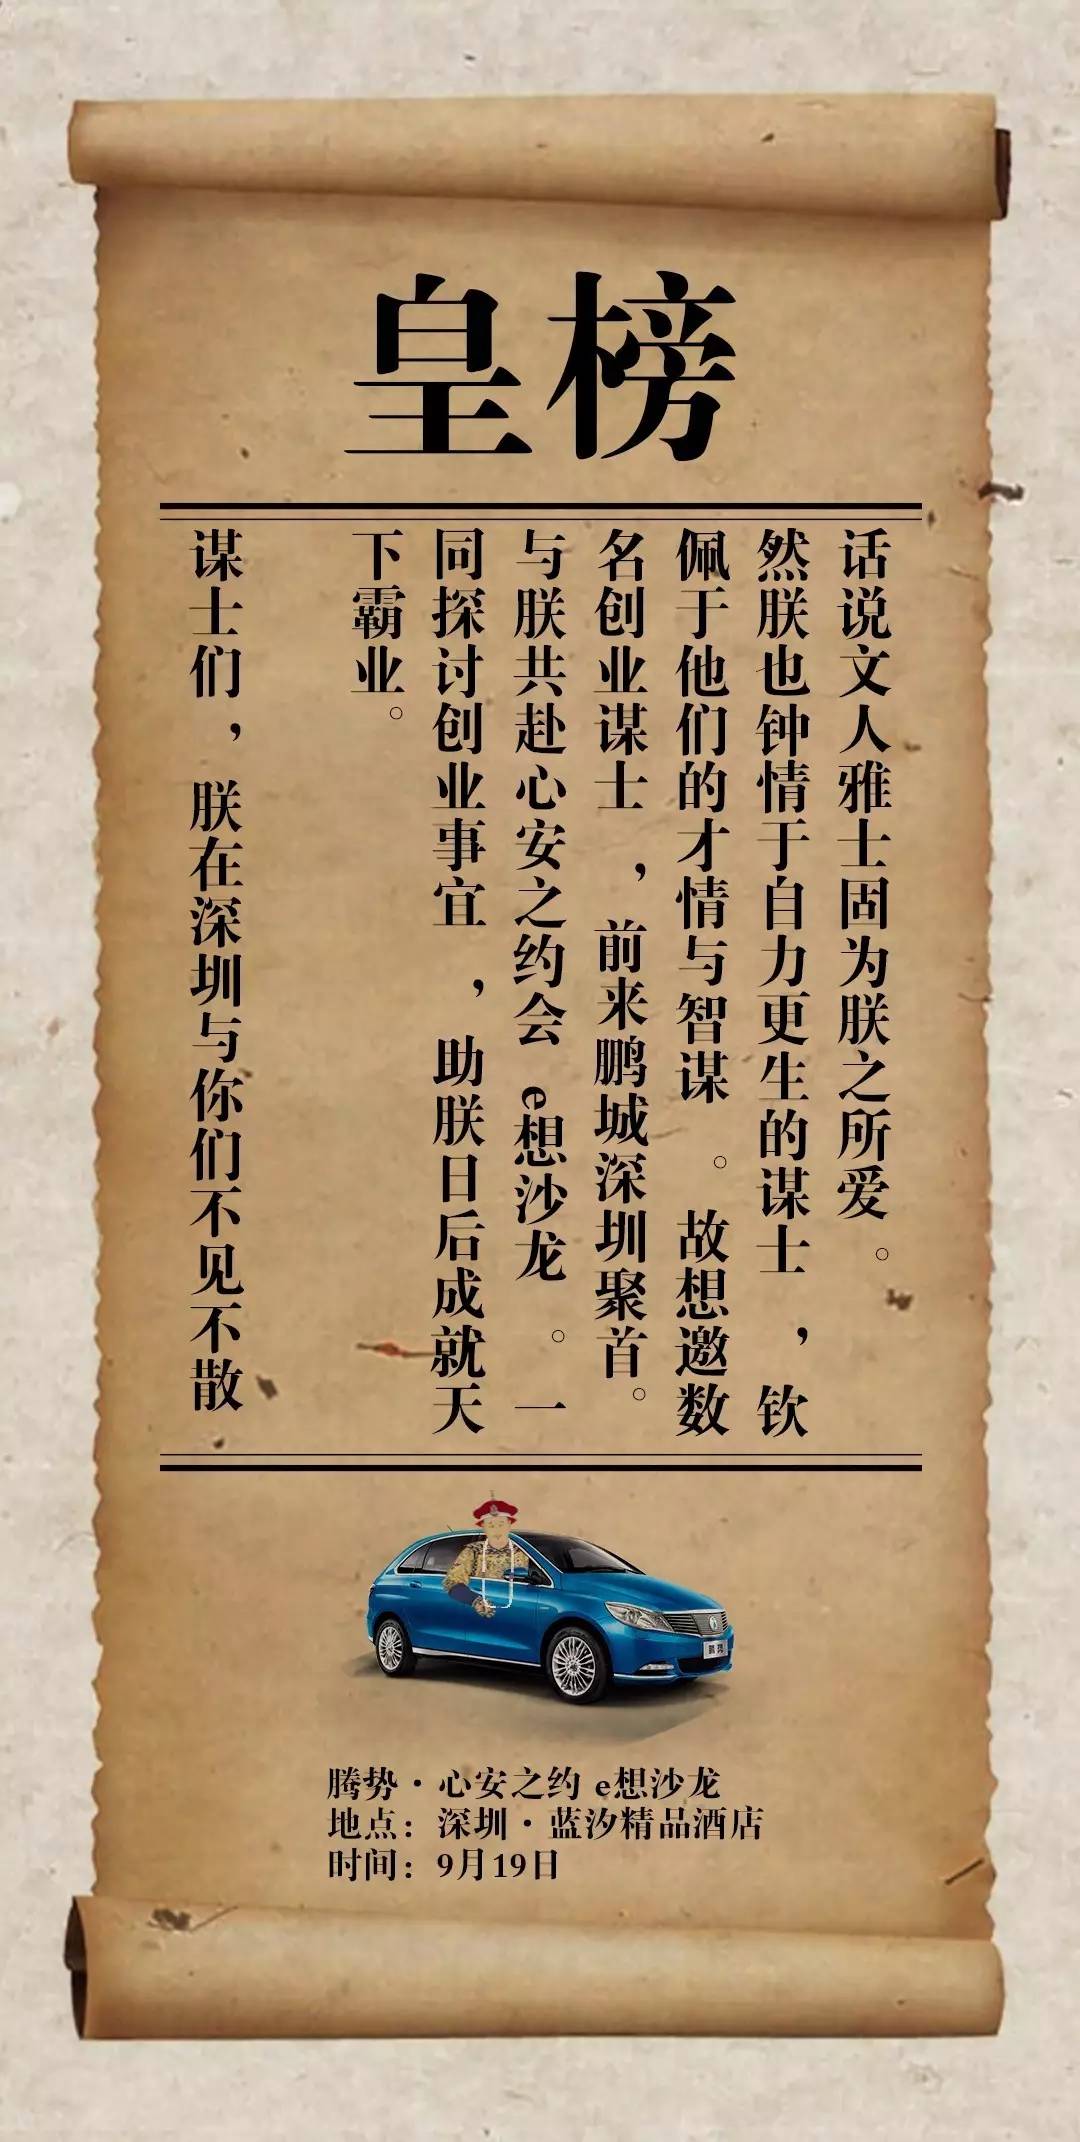 皇榜
话说文人雅士固为朕之所爱。
然朕也钟情于自力更生的谋士，钦
佩于他们的才情与智谋。故想邀数
名创业谋士，前来鹏城深圳聚首。
与朕共赴心安之约会 e想沙龙。一
同探讨创业事宜，助朕日后成就天
下霸业。
谋士们，朕在深圳与你们不见不散
腾势
腾势·心安之约 e想沙龙
地点：深圳·蓝汐精品酒店
时间：9月19日